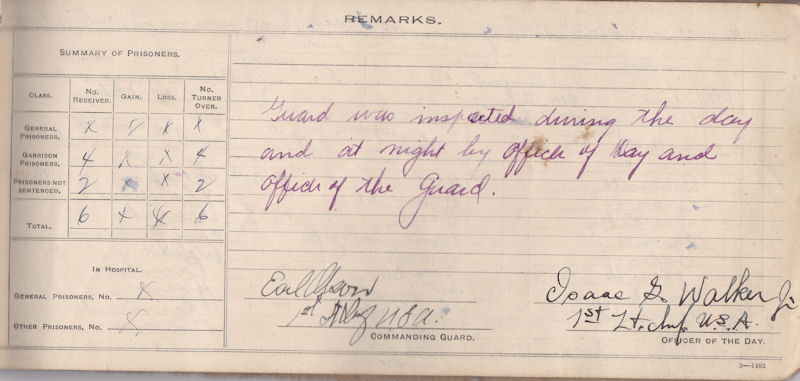 REMARKS.
SUMMARY OF PRISONERS.
CLASS. No. RECEIVED. GAIN. LOSS. No. TURNED OVER.
GENERAL PRISONERS. x x x
GARRISON PRISONERS. 4 x x 4
PRISONERS NOT SENTENCED. 2 x x 2
TOTAL. 6 x x 6
IN HOSPITAL.
GENERAL PRISONERS, No. x
OTHER PRISONERS, No. x
Guard was inspected during the day
and at night by officer of Day and
officer of the Guard.
1st U.S.A.
COMMANDING GUARD.
Isaac G. Walker Jr.
1st Lt. Inf. U.S.A.
OFFICER OF THE DAY.
3—1492